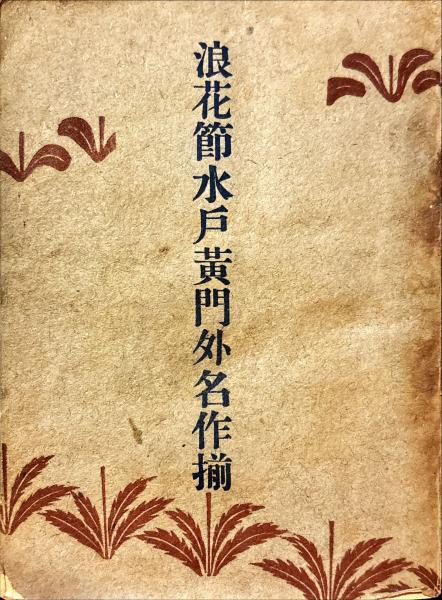 浪花節水戸黄門外名作揃